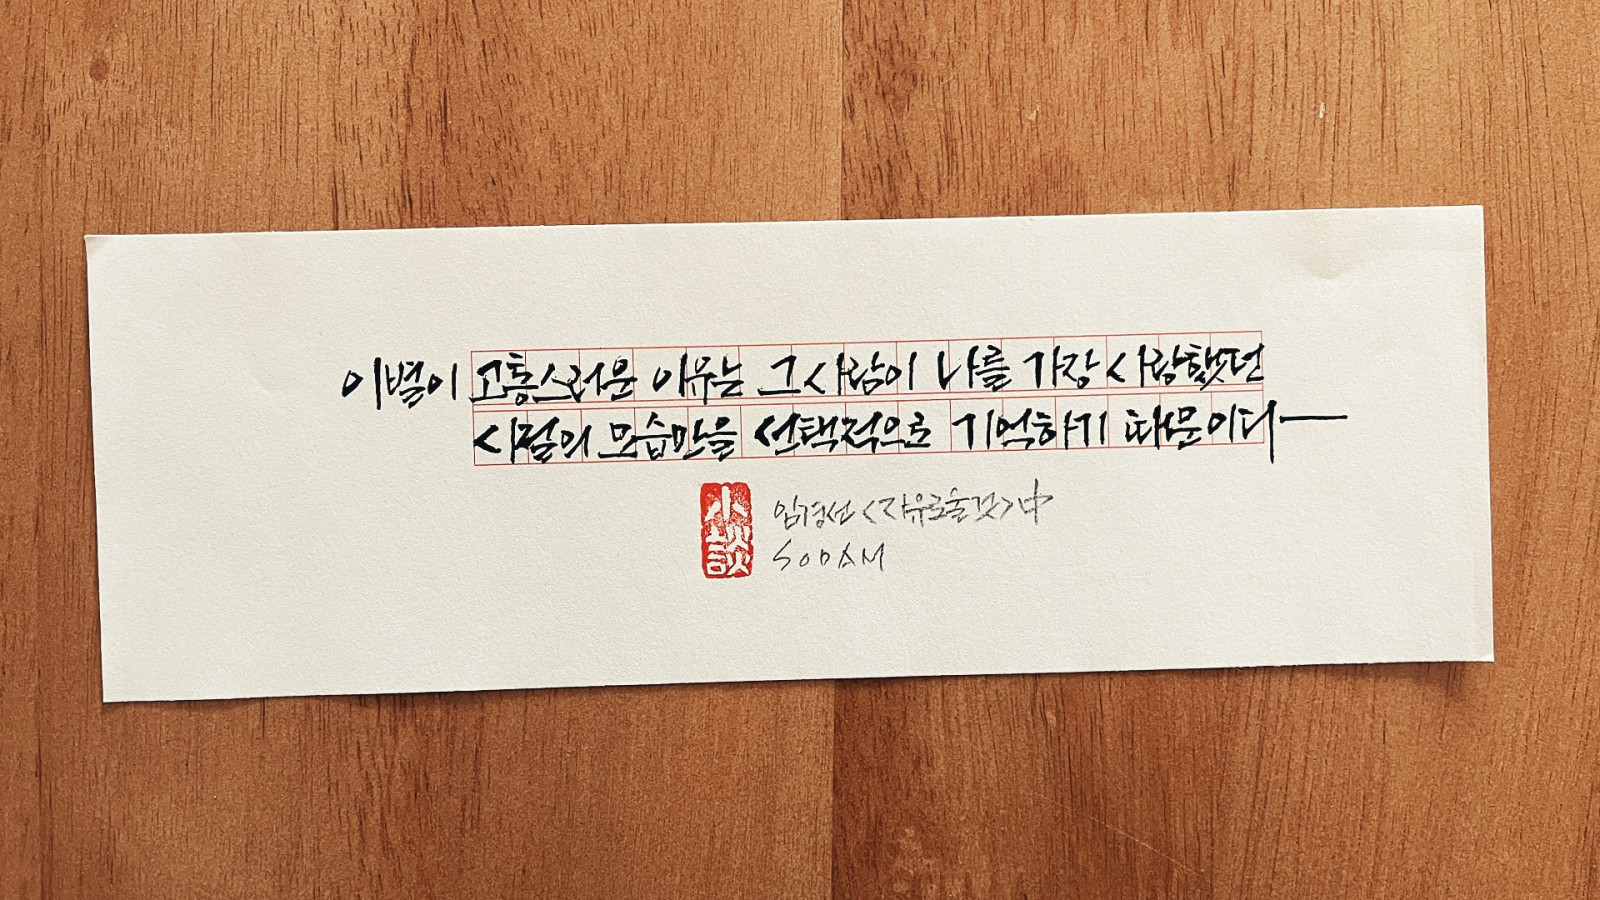 이별이 고통스러운 이유는 그 사람이 나를 가장 사랑했던
시절의 모습만을 선택적으로 기억하기 때문이다
小談
임경선 <자유로울 것> 中
SODAM